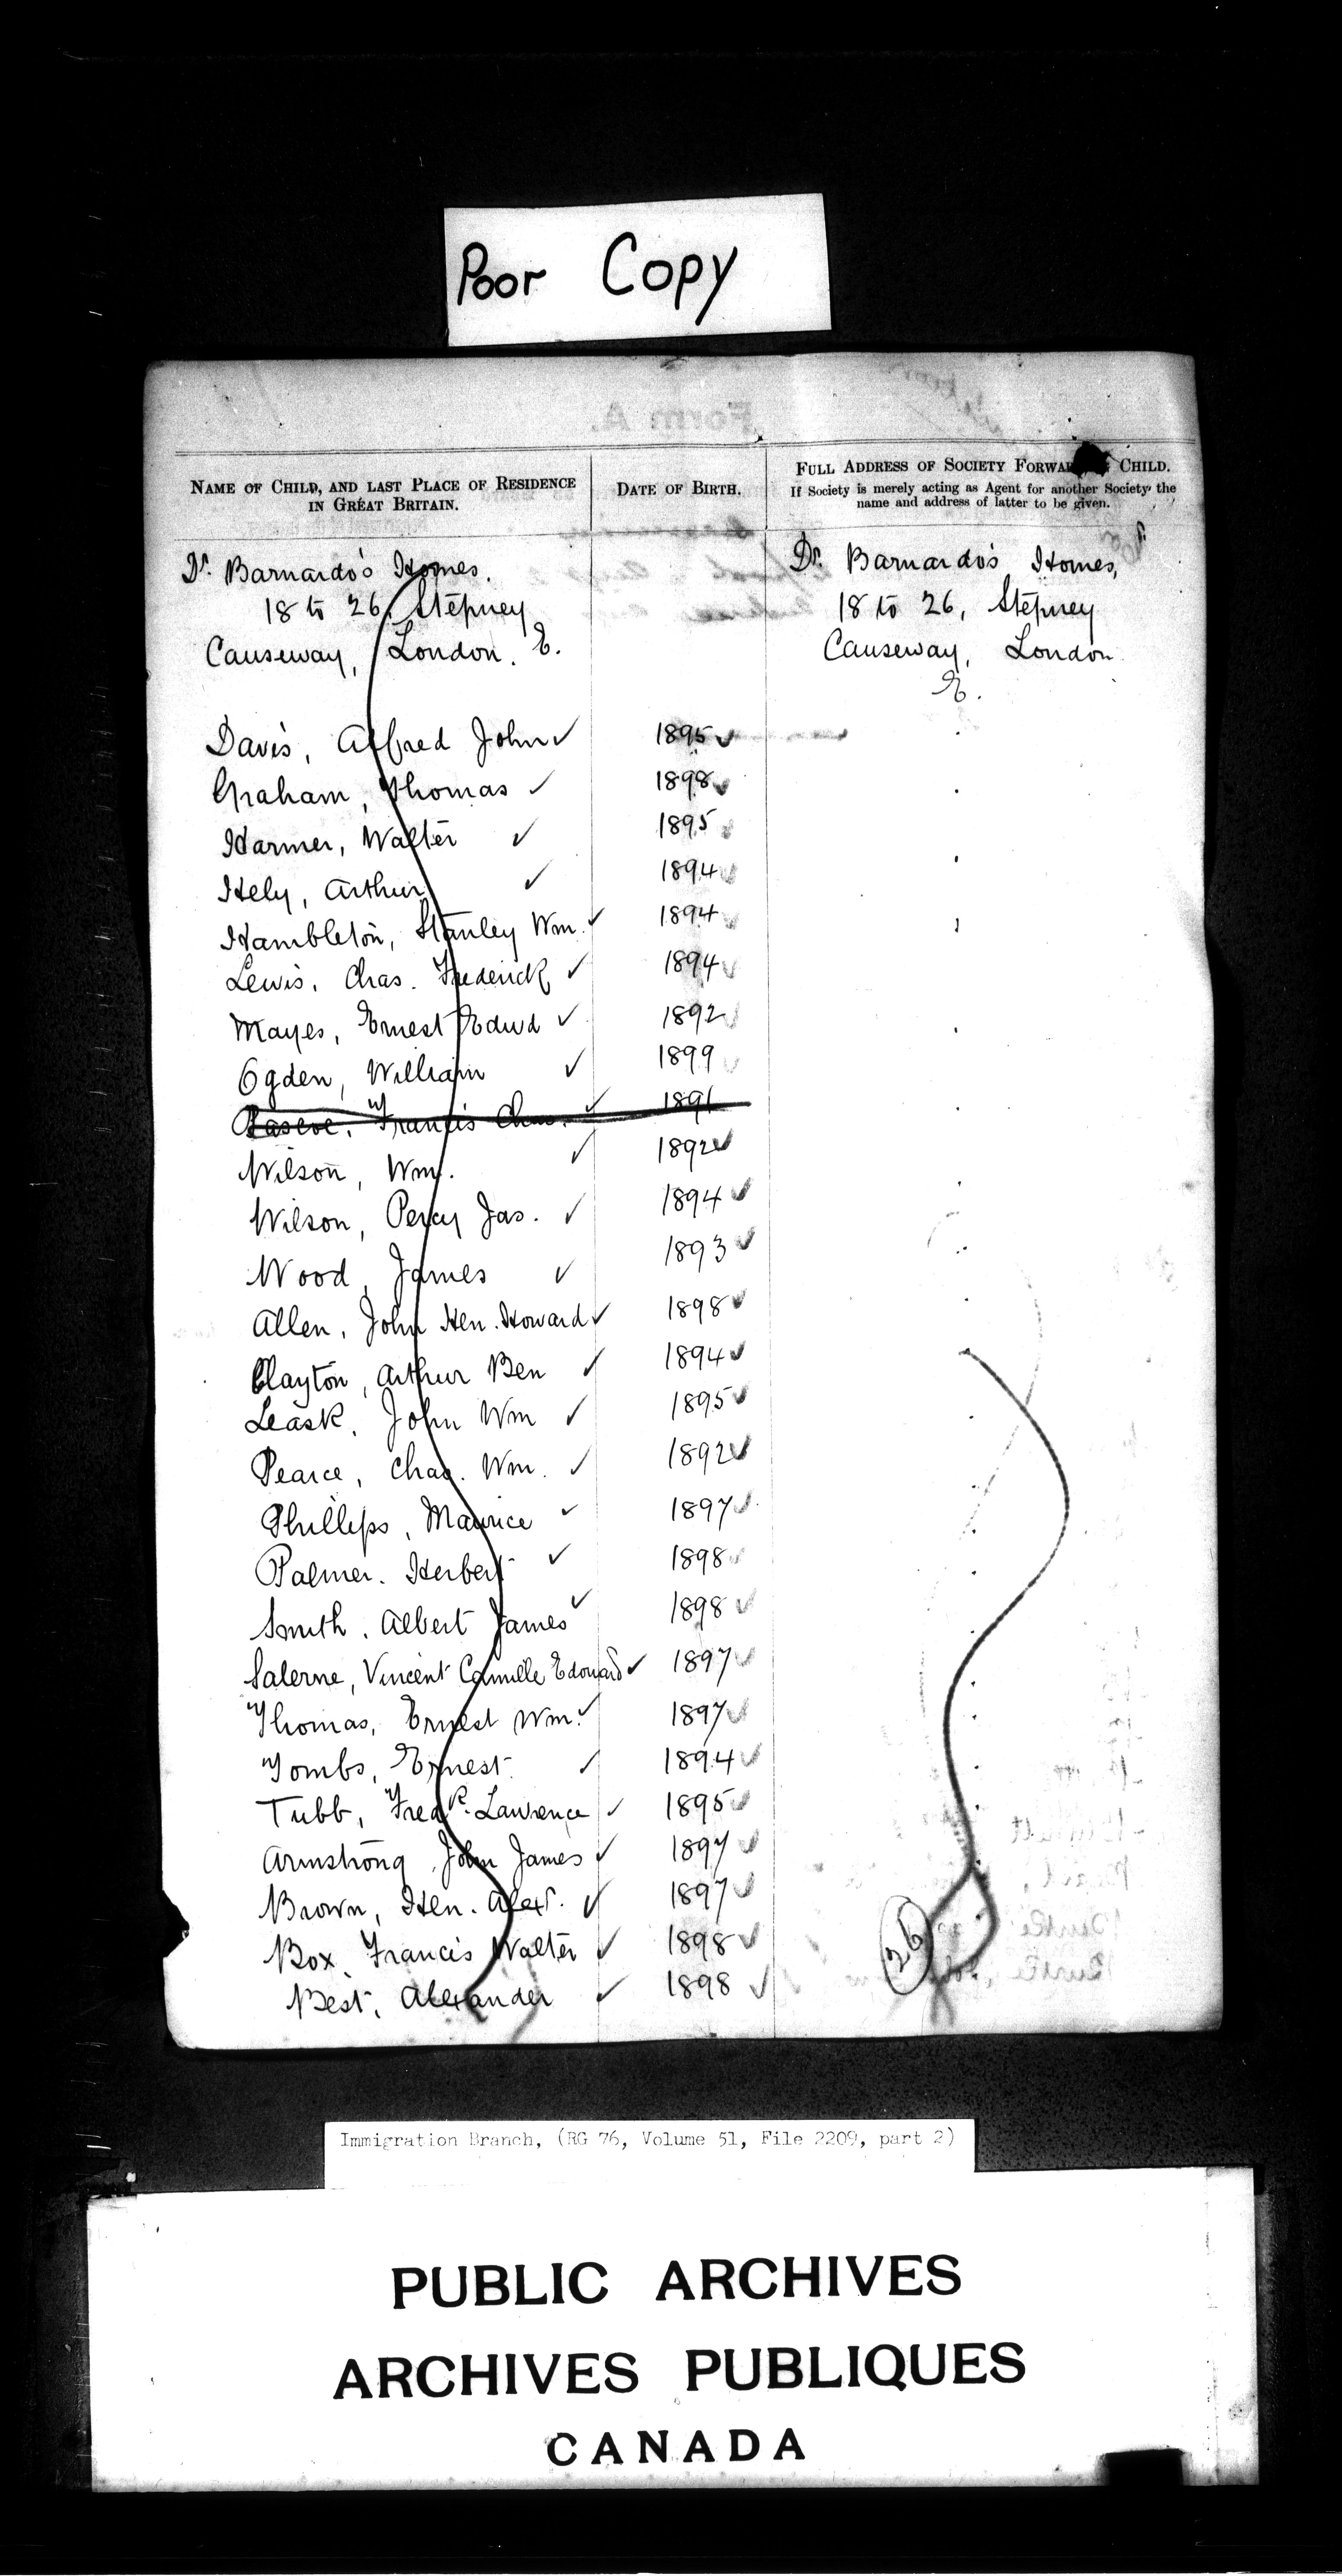 Poor Copy
Form A.
NAME OF CHILD, AND LAST PLACE OF RESIDENCE
IN GREAT BRITAIN.
DATE OF BIRTH.
FULL ADDRESS OF SOCIETY FORWA CHILD.
If Society is merely acting as Agent for another Society the
name and address of latter to be given.
Dr. Barnardo's Homes,
18 to 26, Stepney
Causeway, London. E.
Dr. Barnardo's Homes,
18 to 26, Stepney
Causeway, London
E.
Davis, Alfred John ✓ 1895 ✓
Graham, Thomas ✓ 1898 ✓
Harmer, Walter ✓ 1895 ✓
Hely, Arthur ✓ 1894 ✓
Hambleton, Stanley Wm. ✓ 1894 ✓
Lewis, Chas. Frederick ✓ 1894 ✓
Mayes, Ernest Edwd ✓ 1892 ✓
Ogden, William ✓ 1899 ✓
Pascoe, Francis Chas. ✓ 1891
Wilson, Wm. ✓ 1892 ✓
Wilson, Percy Jas. ✓ 1894 ✓
Wood, James ✓ 1893 ✓
Allen, John Hen. Howard ✓ 1898 ✓
Clayton, Arthur Ben ✓ 1894 ✓
Leask, John Wm ✓ 1895 ✓
Pearce, Chas. Wm. ✓ 1892 ✓
Phillips, Maurice ✓ 1897 ✓
Palmer. Herbert ✓ 1898 ✓
Smith, Albert James ✓ 1898 ✓
Salerne, Vincent Camille Edouard ✓ 1897 ✓
Thomas, Ernest Wm. ✓ 1897 ✓
Tombs, Ernest ✓ 1894 ✓
Tubb, Fredk. Lawrence ✓ 1895 ✓
Armstrong, John James ✓ 1897 ✓
Brown, Hen. Alexr. ✓ 1897 ✓
Box, Francis Walter ✓ 1898 ✓
Best, Alexander ✓ 1898 ✓
26
Immigration Branch, (RG 76, Volume 51, File 2209, part 2)
PUBLIC ARCHIVES
ARCHIVES PUBLIQUES
CANADA